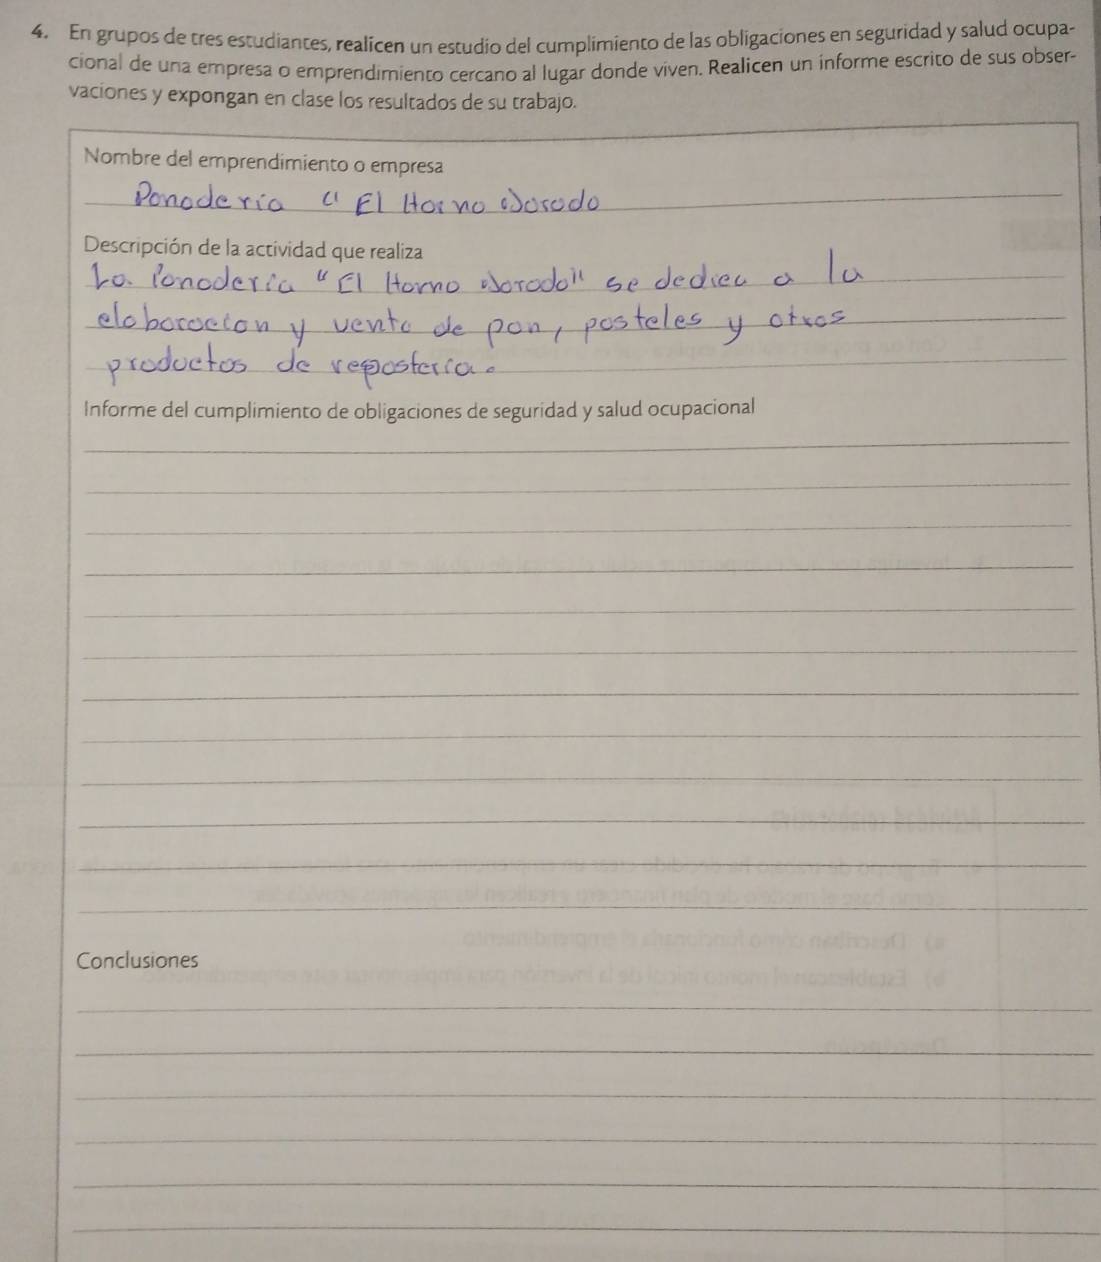 4. En grupos de tres estudiantes, realicen un estudio del cumplimiento de las obligaciones en seguridad y salud ocupa-
cional de una empresa o emprendimiento cercano al lugar donde viven. Realicen un informe escrito de sus obser-
vaciones y expongan en clase los resultados de su trabajo.
Nombre del emprendimiento o empresa
Panaderia “ El Horno Dorado
Descripción de la actividad que realiza
La Panaderia “El Horno Dorado" se dedica a la
elaboracion y venta de pan, pasteles y otros
productos de reposteria.
Informe del cumplimiento de obligaciones de seguridad y salud ocupacional
Conclusiones